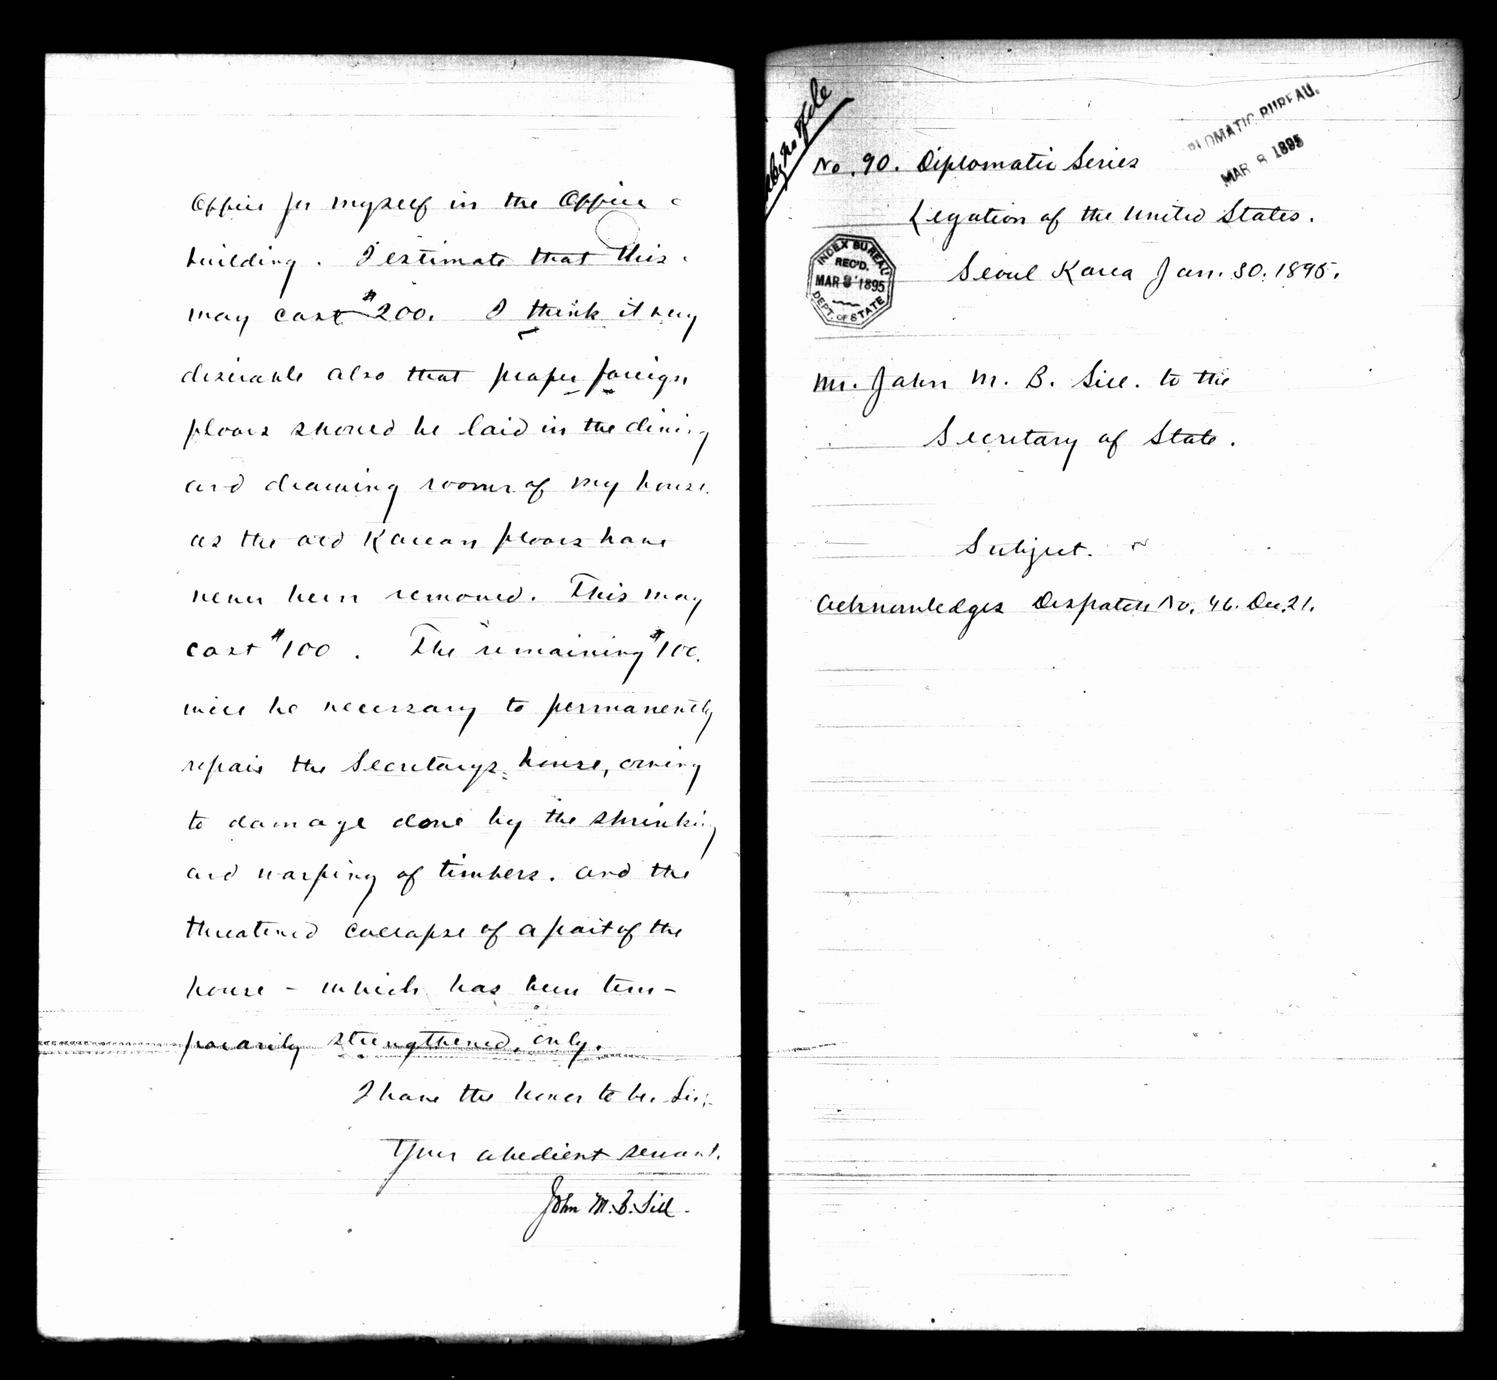 Office for myself in the Office
building. I estimate that this
may cost $200. I think it very
desirable also that proper foreign
floors should be laid in the dining
and drawing rooms of my house
as the old Korean floors have
never been removed. This may
cost $100. The remaining $100.
will be necessary to permanently
repair the Secretarys house, owing
to damage done by the shrinking
and warping of timbers. and the
threatened collapse of a part of the
house - which has been tem-
porarily strengthened, only.
I have the honor to be. Sir;
Your obedient servant.
John M. B. Sill.
DIPLOMATIC BUREAU.
MAR 8 1895
No. 90. Diplomatic Series
Legation of the United States.
Seoul Korea Jan. 30. 1895.
INDEX BUREAU
REC'D.
MAR 8 1895
DEPT. OF STATE
Mr. John M. B. Sill. to the
Secretary of State.
Subject.
Acknowledges Despatch No. 46. Dec. 21.